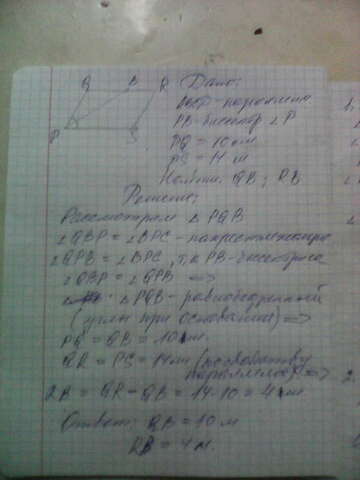 Q B R
P S
Дано:
PB - биссектр ∠P
PQ = 10 см
PS = 14 м
Найти: QB; RB
Решение:
Рассмотрим Δ PQB
∠QBP = ∠BPC - накрестлежащие
∠QPB = ∠BPC, т.к PB - биссектриса
∠QBP = ∠QPB =>
Δ PQB - равнобедренный
(углы при основании) =>
PQ = QB = 10 см
QR = PS = 14 м (по свойству
=>
RB = QR - QB = 14 - 10 = 4 см
Ответ: QB = 10 м
RB = 4 м.